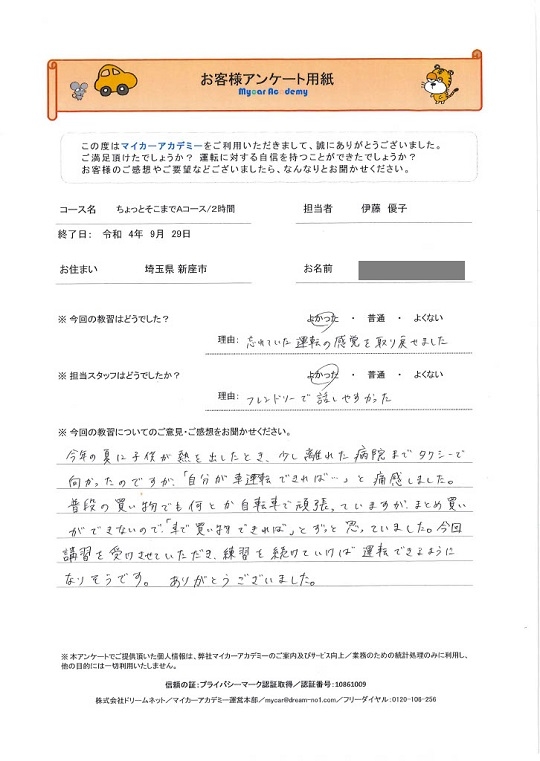 お客様アンケート用紙
Mycar Academy
この度はマイカーアカデミーをご利用いただきまして、誠にありがとうございました。
ご満足頂けたでしょうか？ 運転に対する自信を持つことができたでしょうか？
お客様のご感想やご要望などございましたら、なんなりとお聞かせください。
コース名 ちょっとそこまでAコース/2時間 担当者 伊藤 優子
終了日： 令和 4年 9月 29日
お住まい 埼玉県 新座市 お名前
※ 今回の教習はどうでした？ よかった ・ 普通 ・ よくない
理由： 忘れていた運転の感覚を取り戻せました
※ 担当スタッフはどうでしたか？ よかった ・ 普通 ・ よくない
理由： フレンドリーで話しやすかった
※ 今回の教習についてのご意見・ご感想をお聞かせください。
今年の夏に子供が熱を出したとき、少し離れた病院までタクシーで
向かったのですが、「自分が車運転できれば…」と痛感しました。
普段の買い物でも何とか自転車で頑張っていますが、まとめ買い
ができないので、「車で買い物できれば」とずっと思っていました。今回
講習を受けさせていただき、練習を続けていけば運転できるように
なりそうです。 ありがとうございました。
※ 本アンケートでご提供頂いた個人情報は、弊社マイカーアカデミーのご案内及びサービス向上／業務のための統計処理のみに利用し、
他の目的には一切利用いたしません。
信頼の証：プライバシーマーク認証取得／認証番号：10861009
株式会社ドリームネット／マイカーアカデミー運営本部／mycar@dream-no1.com／フリーダイヤル：0120-106-256